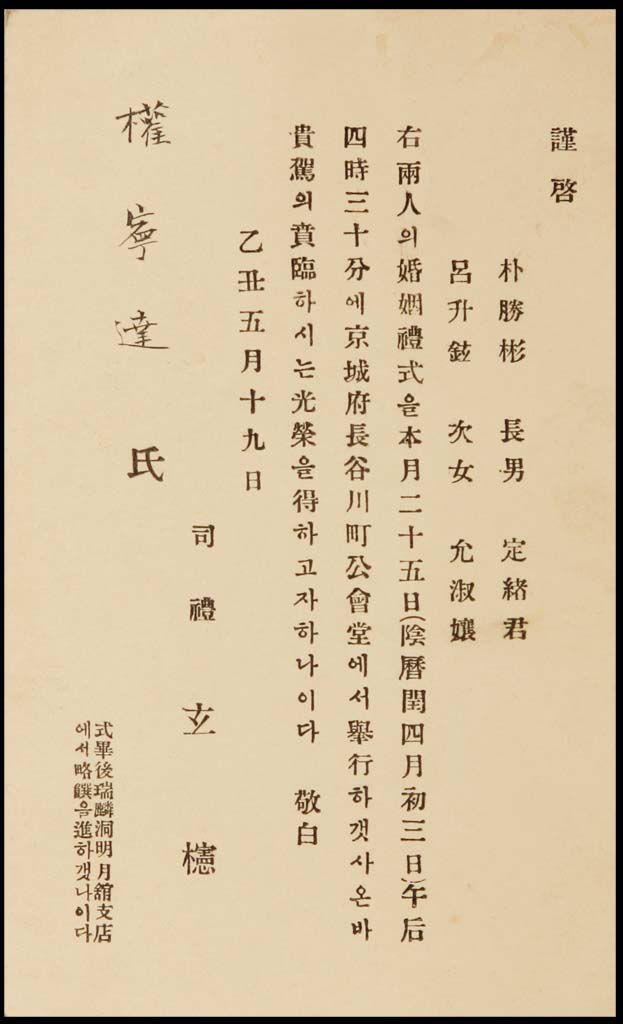 謹啓
朴勝彬 長男 定緖君
呂升鉉 次女 允淑孃
右兩人의婚姻禮式을本月二十五日(陰曆閏四月初三日)午后
四時三十分에京城府長谷川町公會堂에서擧行하겟사온바
貴駕의賁臨하시는光榮을得하고자하나이다 敬白
乙丑五月十九日
司禮 玄櫶
權寧達 氏
式畢後瑞麟洞明月舘支店
에서略饌을進하겟나이다